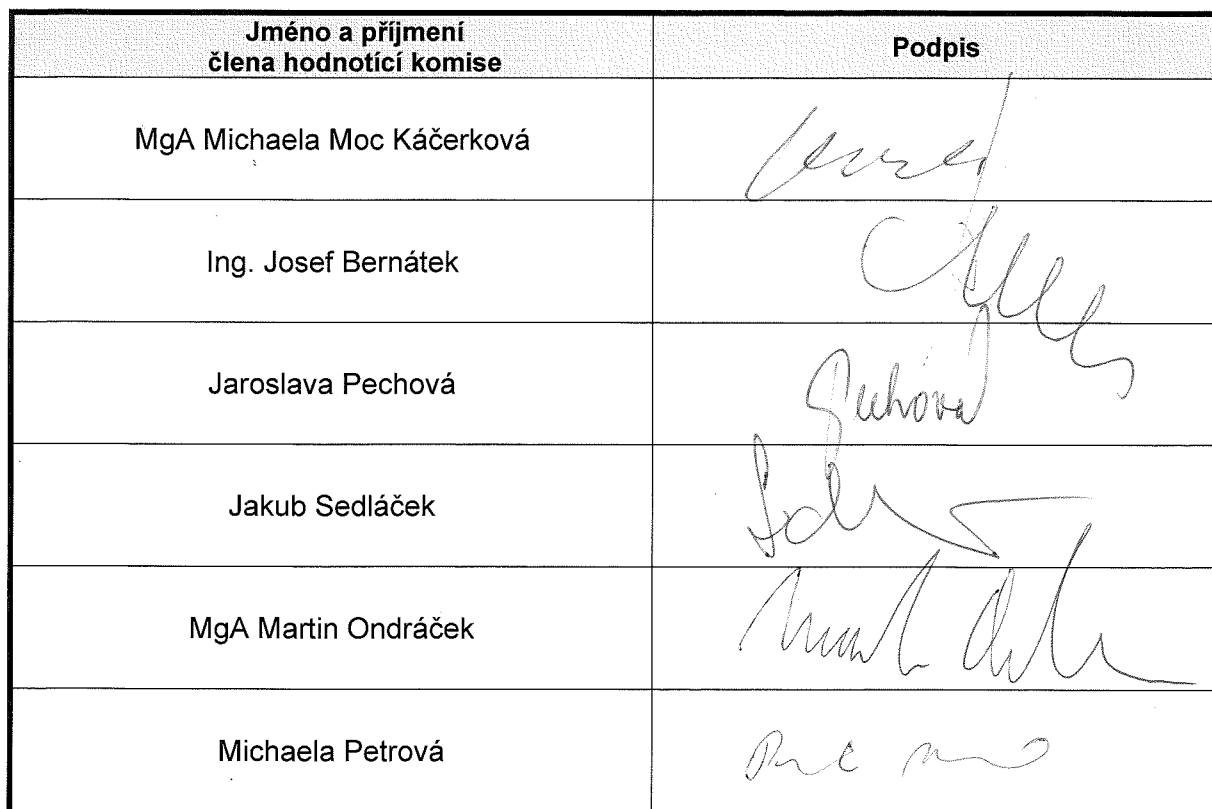 Jméno a příjmení
člena hodnotící komise
Podpis
MgA Michaela Moc Káčerková
Ing. Josef Bernátek
Jaroslava Pechová
Pechová
Jakub Sedláček
MgA Martin Ondráček
Michaela Petrová